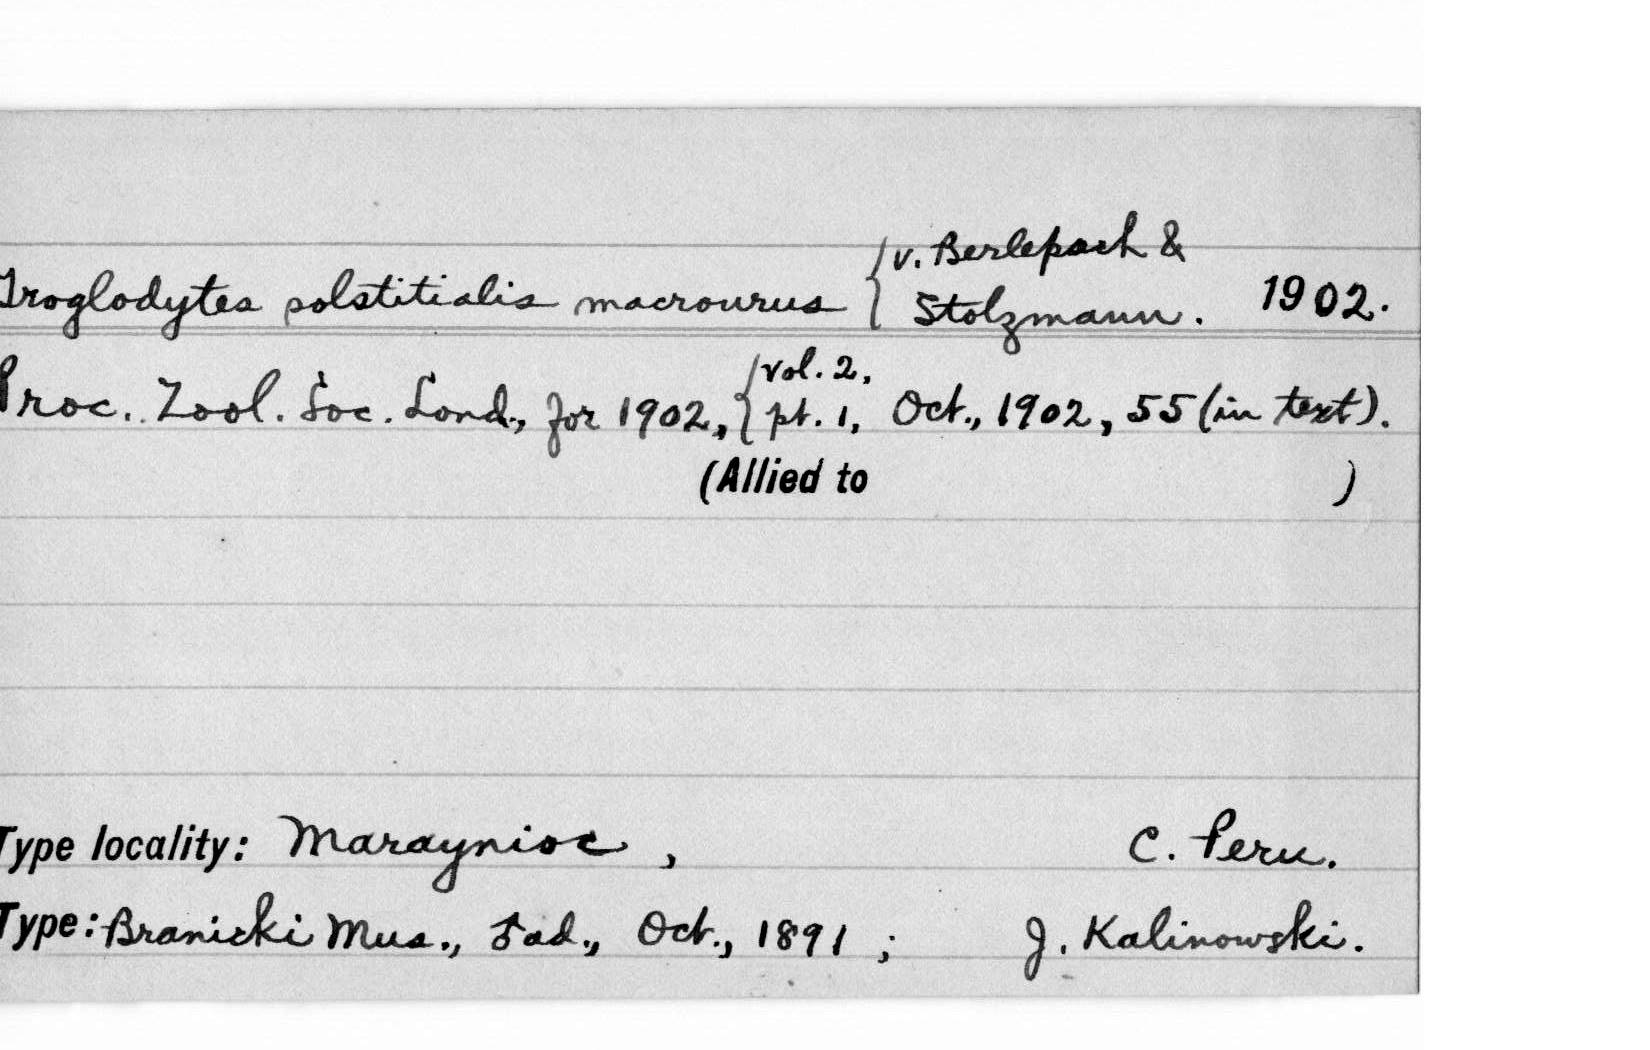 Troglodytes solstitialis macrourus { v. Berlepsch & Stolzmann. 1902.
Proc. Zool. Soc. Lond., for 1902, { vol. 2, pt. 1, Oct., 1902, 55 (in text).
(Allied to )
Type locality: Maraynioc, C. Peru.
Type: Branicki Mus., ad., Oct., 1891; J. Kalinowski.